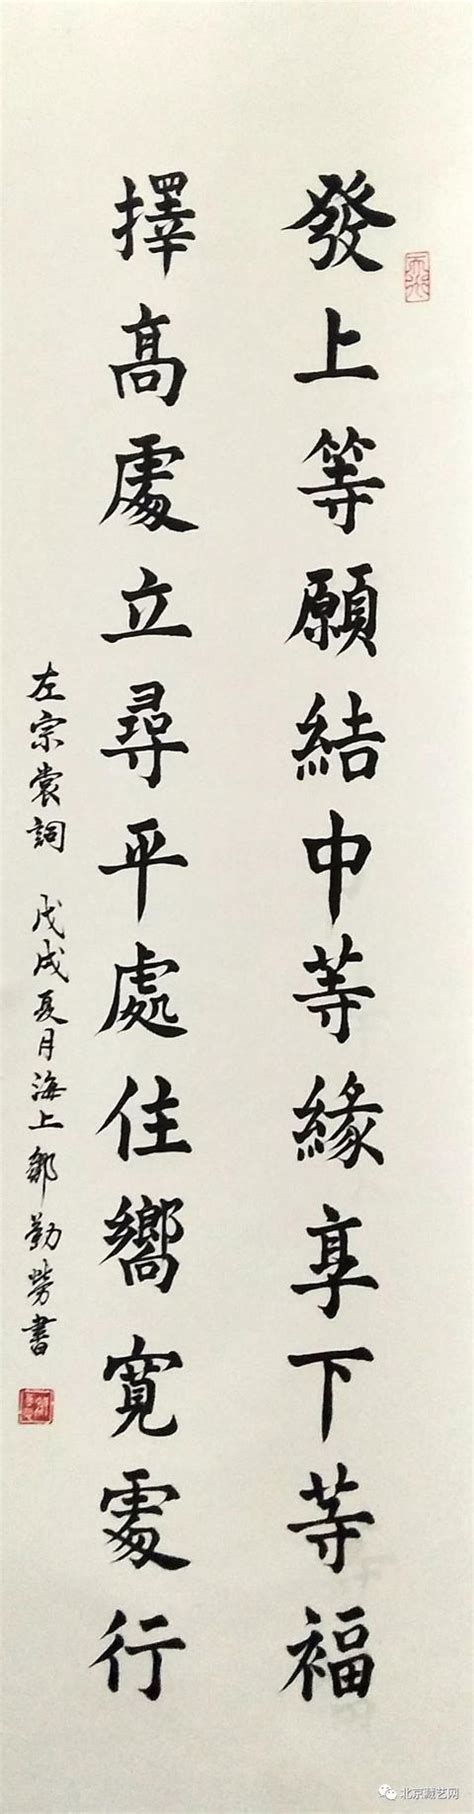 發上等願結中等緣享下等福
擇高處立尋平處住嚮寬處行
左宗棠詞 戊戌夏月海上鄒勤勞書
北京藏艺网